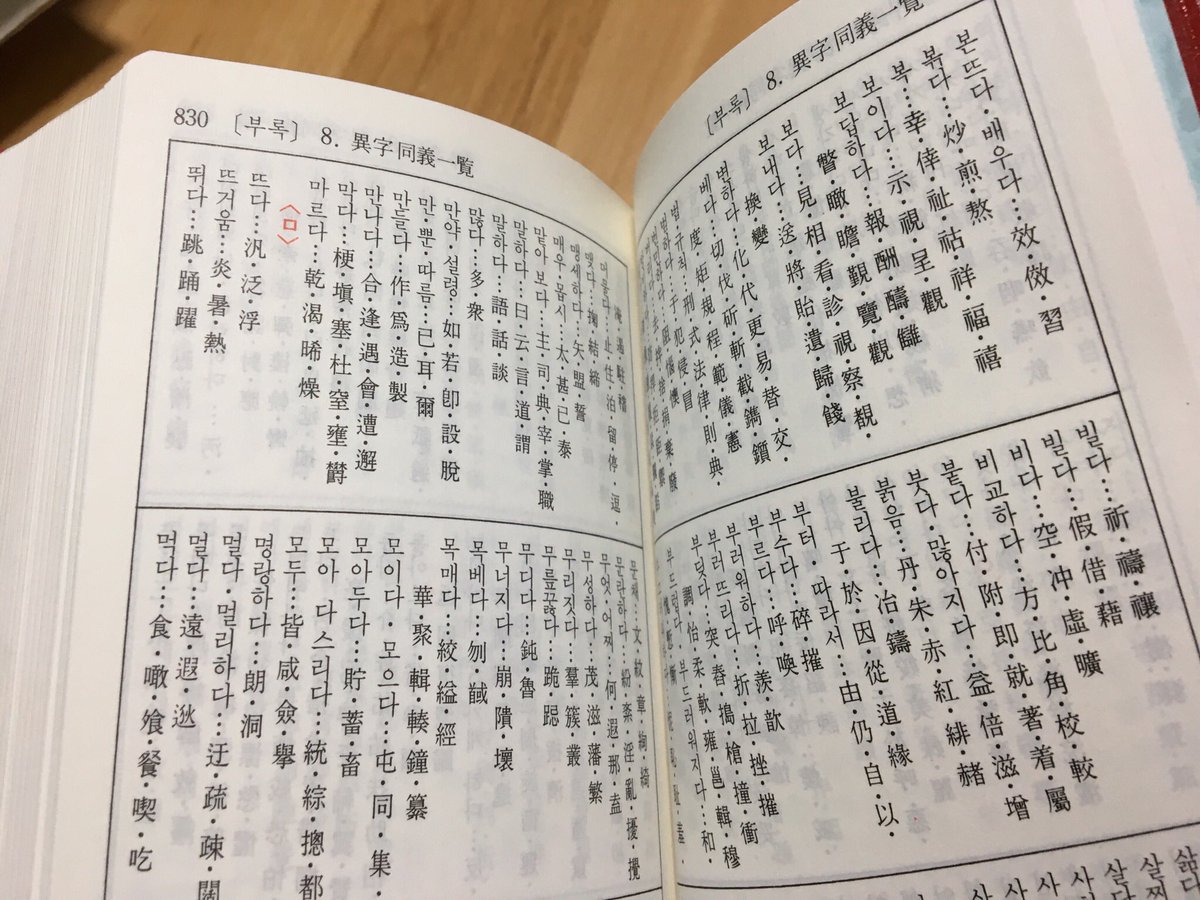 830 〔부록〕 8. 異字同義一覧
뛰다…跳·踊·躍
뜨거움…炎·暑·熱
뜨다…汎·泛·浮
〈ㅁ〉
마르다…乾·渴·晞·燥
막다…梗·塡·塞·杜·窒·壅·欝
만나다…合·逢·遇·會·遭·邂
만들다…作·爲·造·製
만·뿐·따름…已·耳·爾
만약·설령…如·若·卽·設·脫
많다…多·衆
말하다…語·話·談
말하다…曰·云·言·道·謂
맡아 보다…主·司·典·宰·掌·職
매우 몹시…太·甚·已·泰
맹세하다…矢·盟·誓
맺다…結·締
머물다…止·住·泊·留·停·逗·
駐·稽
먹다…食·噉·飧·餐·喫·吃
멀다…遠·遐·逖
멀다·멀리하다…迂·疏·疎·闊
명랑하다…朗·洞
모두…皆·咸·僉·擧
모아 다스리다…統·綜·摠·都
모아두다…貯·蓄·畜
모이다·모으다…屯·同·集·
華·聚·輯·輳·鐘·纂
목매다…絞·縊·經
목베다…刎·馘
무너지다…崩·隤·壞
무디다…鈍·魯
무릎꿇다…跪·跽
무리짓다…羣·簇·叢
무성하다…茂·滋·藩·繁
무엇·어찌…何·遐·那·盍
문란하다…紛·紊·淫·亂·擾·攪
문채…文·紋·章·絢·綺
〔부록〕 8. 異字同義一覧
범·규칙…刑·式·法·律·則·典·
度·矩·規·程·範·儀·憲
베다…切·伐·斫·斬·截·鐫·鑕
변하다…化·代·更·易·替·交·
換·變
보내다…送·將·貽·遺·歸·餞
보다…見·相·看·診·視·察·覩·
瞥·瞰·瞻·覲·覽·觀
보답하다…報·酬·醻·讎
보이다…示·視·呈·觀
복…幸·倖·祉·祜·祥·福·禧
볶다…炒·煎·熬
본뜨다·배우다…效·倣·習
부드럽다·부드러워지다…和·
調·怡·柔·軟·雍·邕·輯·穆
부딪다…突·舂·搗·槍·撞·衝
부러뜨리다…折·拉·挫·摧
부러워하다…羨·歆
부르다…呼·喚
부수다…碎·摧
부터·따라서…由·仍·自·以·
于·於·因·從·道·緣
불리다…冶·鑄
붉음…丹·朱·赤·紅·緋·赭
붓다·많아지다…益·倍·滋·增
붙다…付·附·卽·就·著·着·屬
비교하다…方·比·角·校·較
비다…空·冲·虛·曠
빌다…假·借·藉
빌다…祈·禱·禳